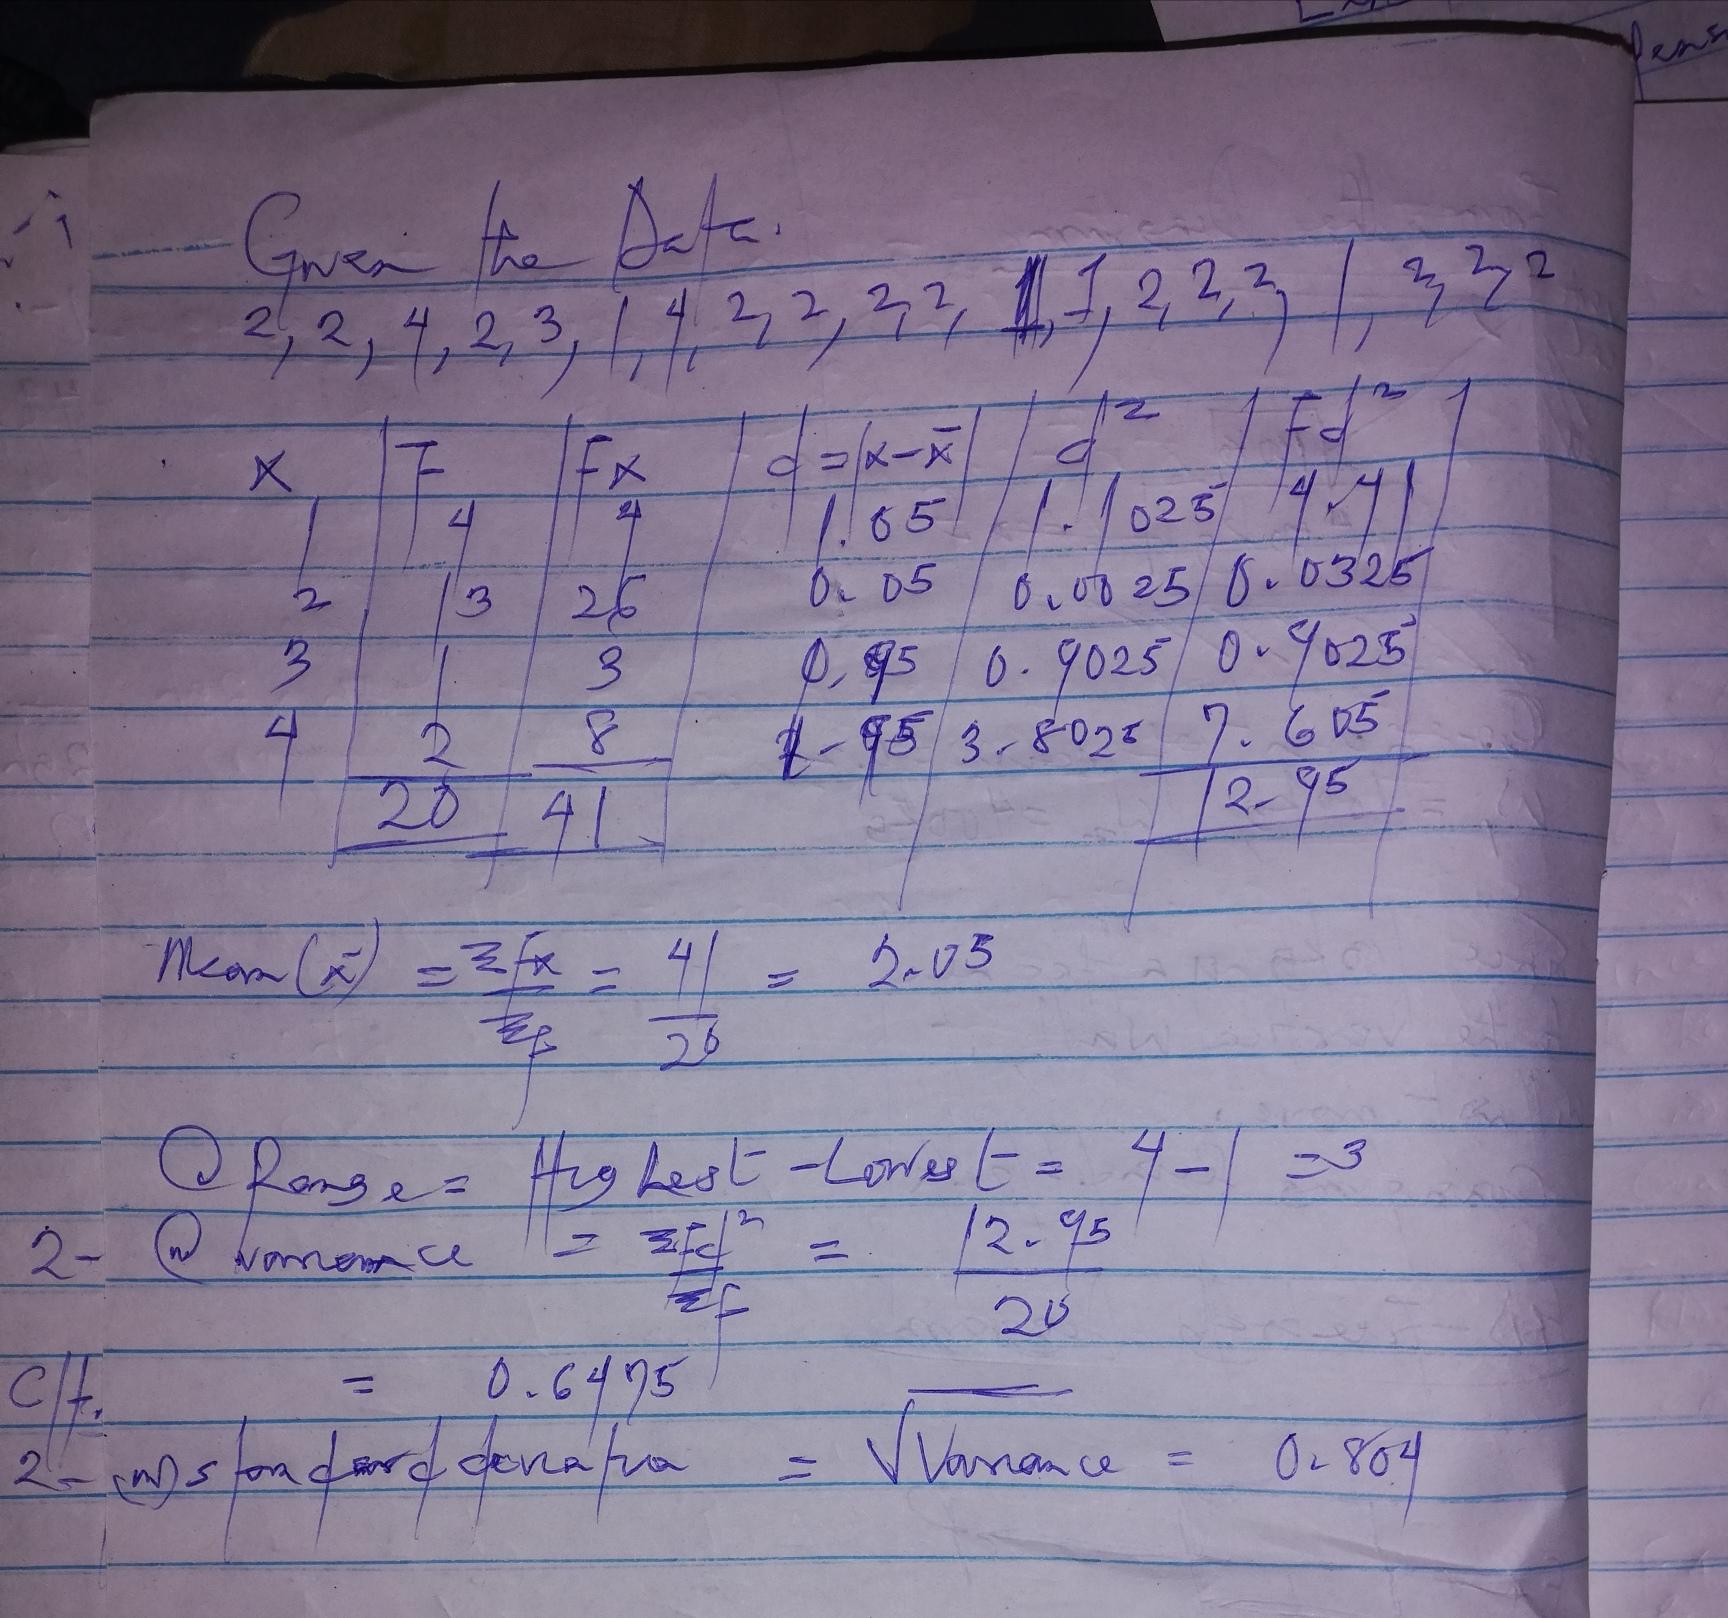 Given the Data.
2, 2, 4, 2, 3, 1, 4, 2, 2, 2, 2, 1, 2, 2, 2, 1, 2, 2, 2
x F Fx d=|x-x̄| d² Fd²
1 4 4 1.05 1.1025 4.41
2 13 26 0.05 0.0025 0.0325
3 1 3 0.95 0.9025 0.9025
4 2 8 1.95 3.8025 7.605
20 41 12.95
Mean (x̄) = Σfx/Σf = 41/20 = 2.05
Range = Highest - Lowest = 4-1 = 3
2- variance = ΣFd²/Σf = 12.95/20
= 0.6475
2- standard deviation = √Variance = 0.804